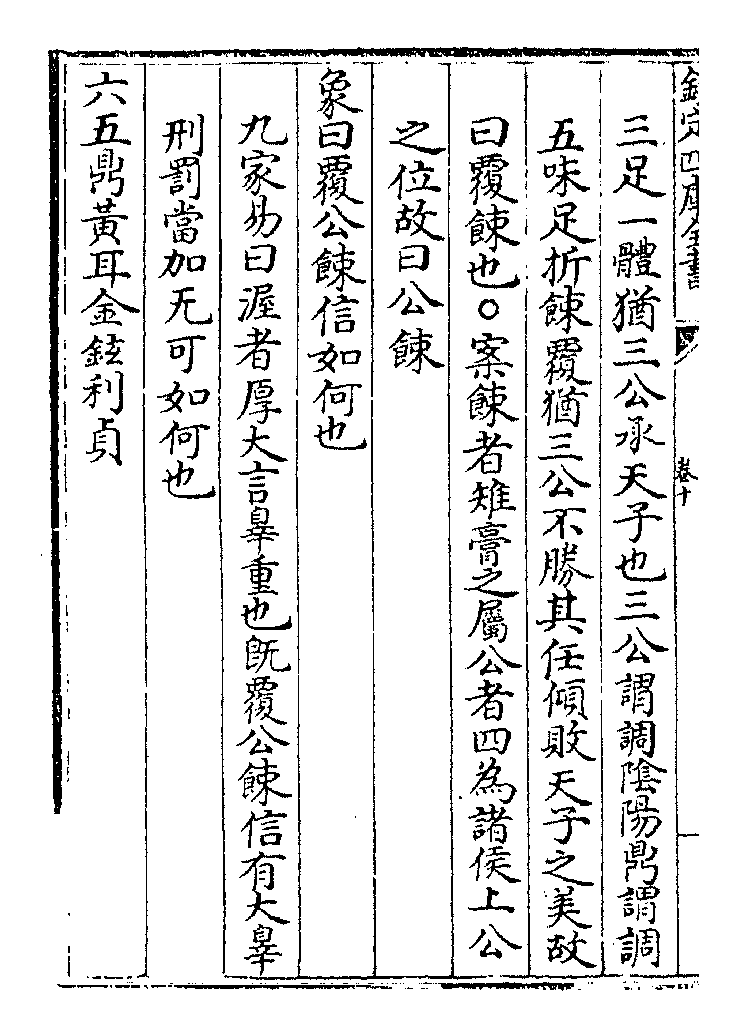 欽定四庫全書
卷十
三足一體猶三公承天子也三公謂調陰陽鼎謂調
五味足折餗覆猶三公不勝其任傾敗天子之美故
曰覆餗也○案餗者雉膏之屬公者四為諸侯上公
之位故曰公餗
象曰覆公餗信如何也
九家易曰渥者厚大言辠重也旣覆公餗信有大辠
刑罰當加无可如何也
六五鼎黃耳金鉉利貞